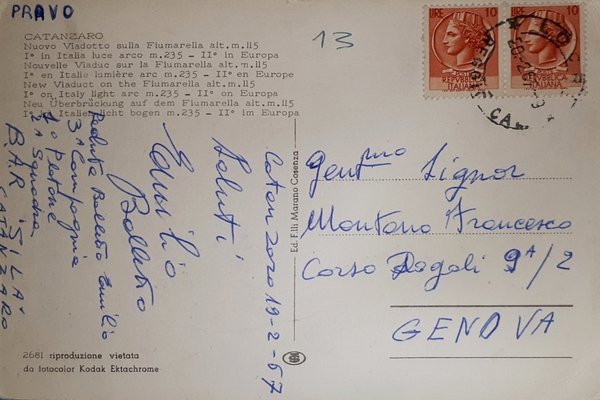 PRAVO
13
CATANZARO
Nuovo Viadotto sulla Fiumarella alt.m.115
I° in Italia luce arco m.235 - II° in Europa
Nouvelle Viaduc sur la Fiumarella alt.m.115
I° en Italie lumière arc m.235 - II° en Europe
New Viaduct on the Fiumarella alt.m.115
I° on Italy light arc m.235 - II° on Europa
Neu Überbrückung auf dem Fiumarella alt.m.115
I° in Italien licht bogen m.235 - II° im Europa
LIRE 10
REPUBBLICA
ITALIANA
10
REPUBBLICA
ITALIANA
Catanzaro 19-2-67
Saluti
Emilio
Bolletto
Emilio
3ª Compagnia
1° Plotone
3ª Squadra
BAR SILA
CATANZARO
Ed. F.lli Marano Cosenza
Gent.mo Signor
Montano Francesco
Corso Dogali 9A/2
GENOVA
2681 riproduzione vietata
da fotocolor Kodak Ektachrome